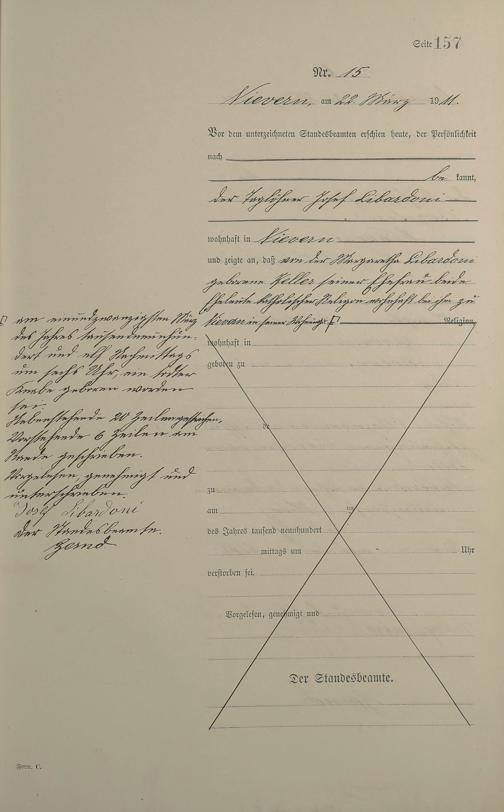 Seite 157
Nr. 15
Nievern, am 22 März 1911.
Vor dem unterzeichneten Standesbeamten erschien heute, der Persönlichkeit
nach
be kannt,
der Taglöhner Josef Libardoni
wohnhaft in Nievern
und zeigte an, daß von der Margaretha Libardoni
geborene Keller seiner Ehefrau beide
Eheleute katholischer Religion wohnhaft bei ihm zu
Nievern in seiner Wohnung Religion,
wohnhaft in
geboren zu
zu
am
des Jahres tausend neunhundert
mittags um Uhr
verstorben sei.
Vorgelesen, genehmigt und
Der Standesbeamte.
am einundzwanzigsten März
des Jahres tausendneunhun-
dert und elf Nachmittags
um sechs Uhr, ein toter
Knabe geboren worden
sei.
Nebenstehende 20 Zeilen gestrichen,
Vorstehende 6 Zeilen am
Rande geschrieben.
Vorgelesen, genehmigt und
unterschrieben.
Josef Libardoni
Der Standesbeamte.
Form. C.